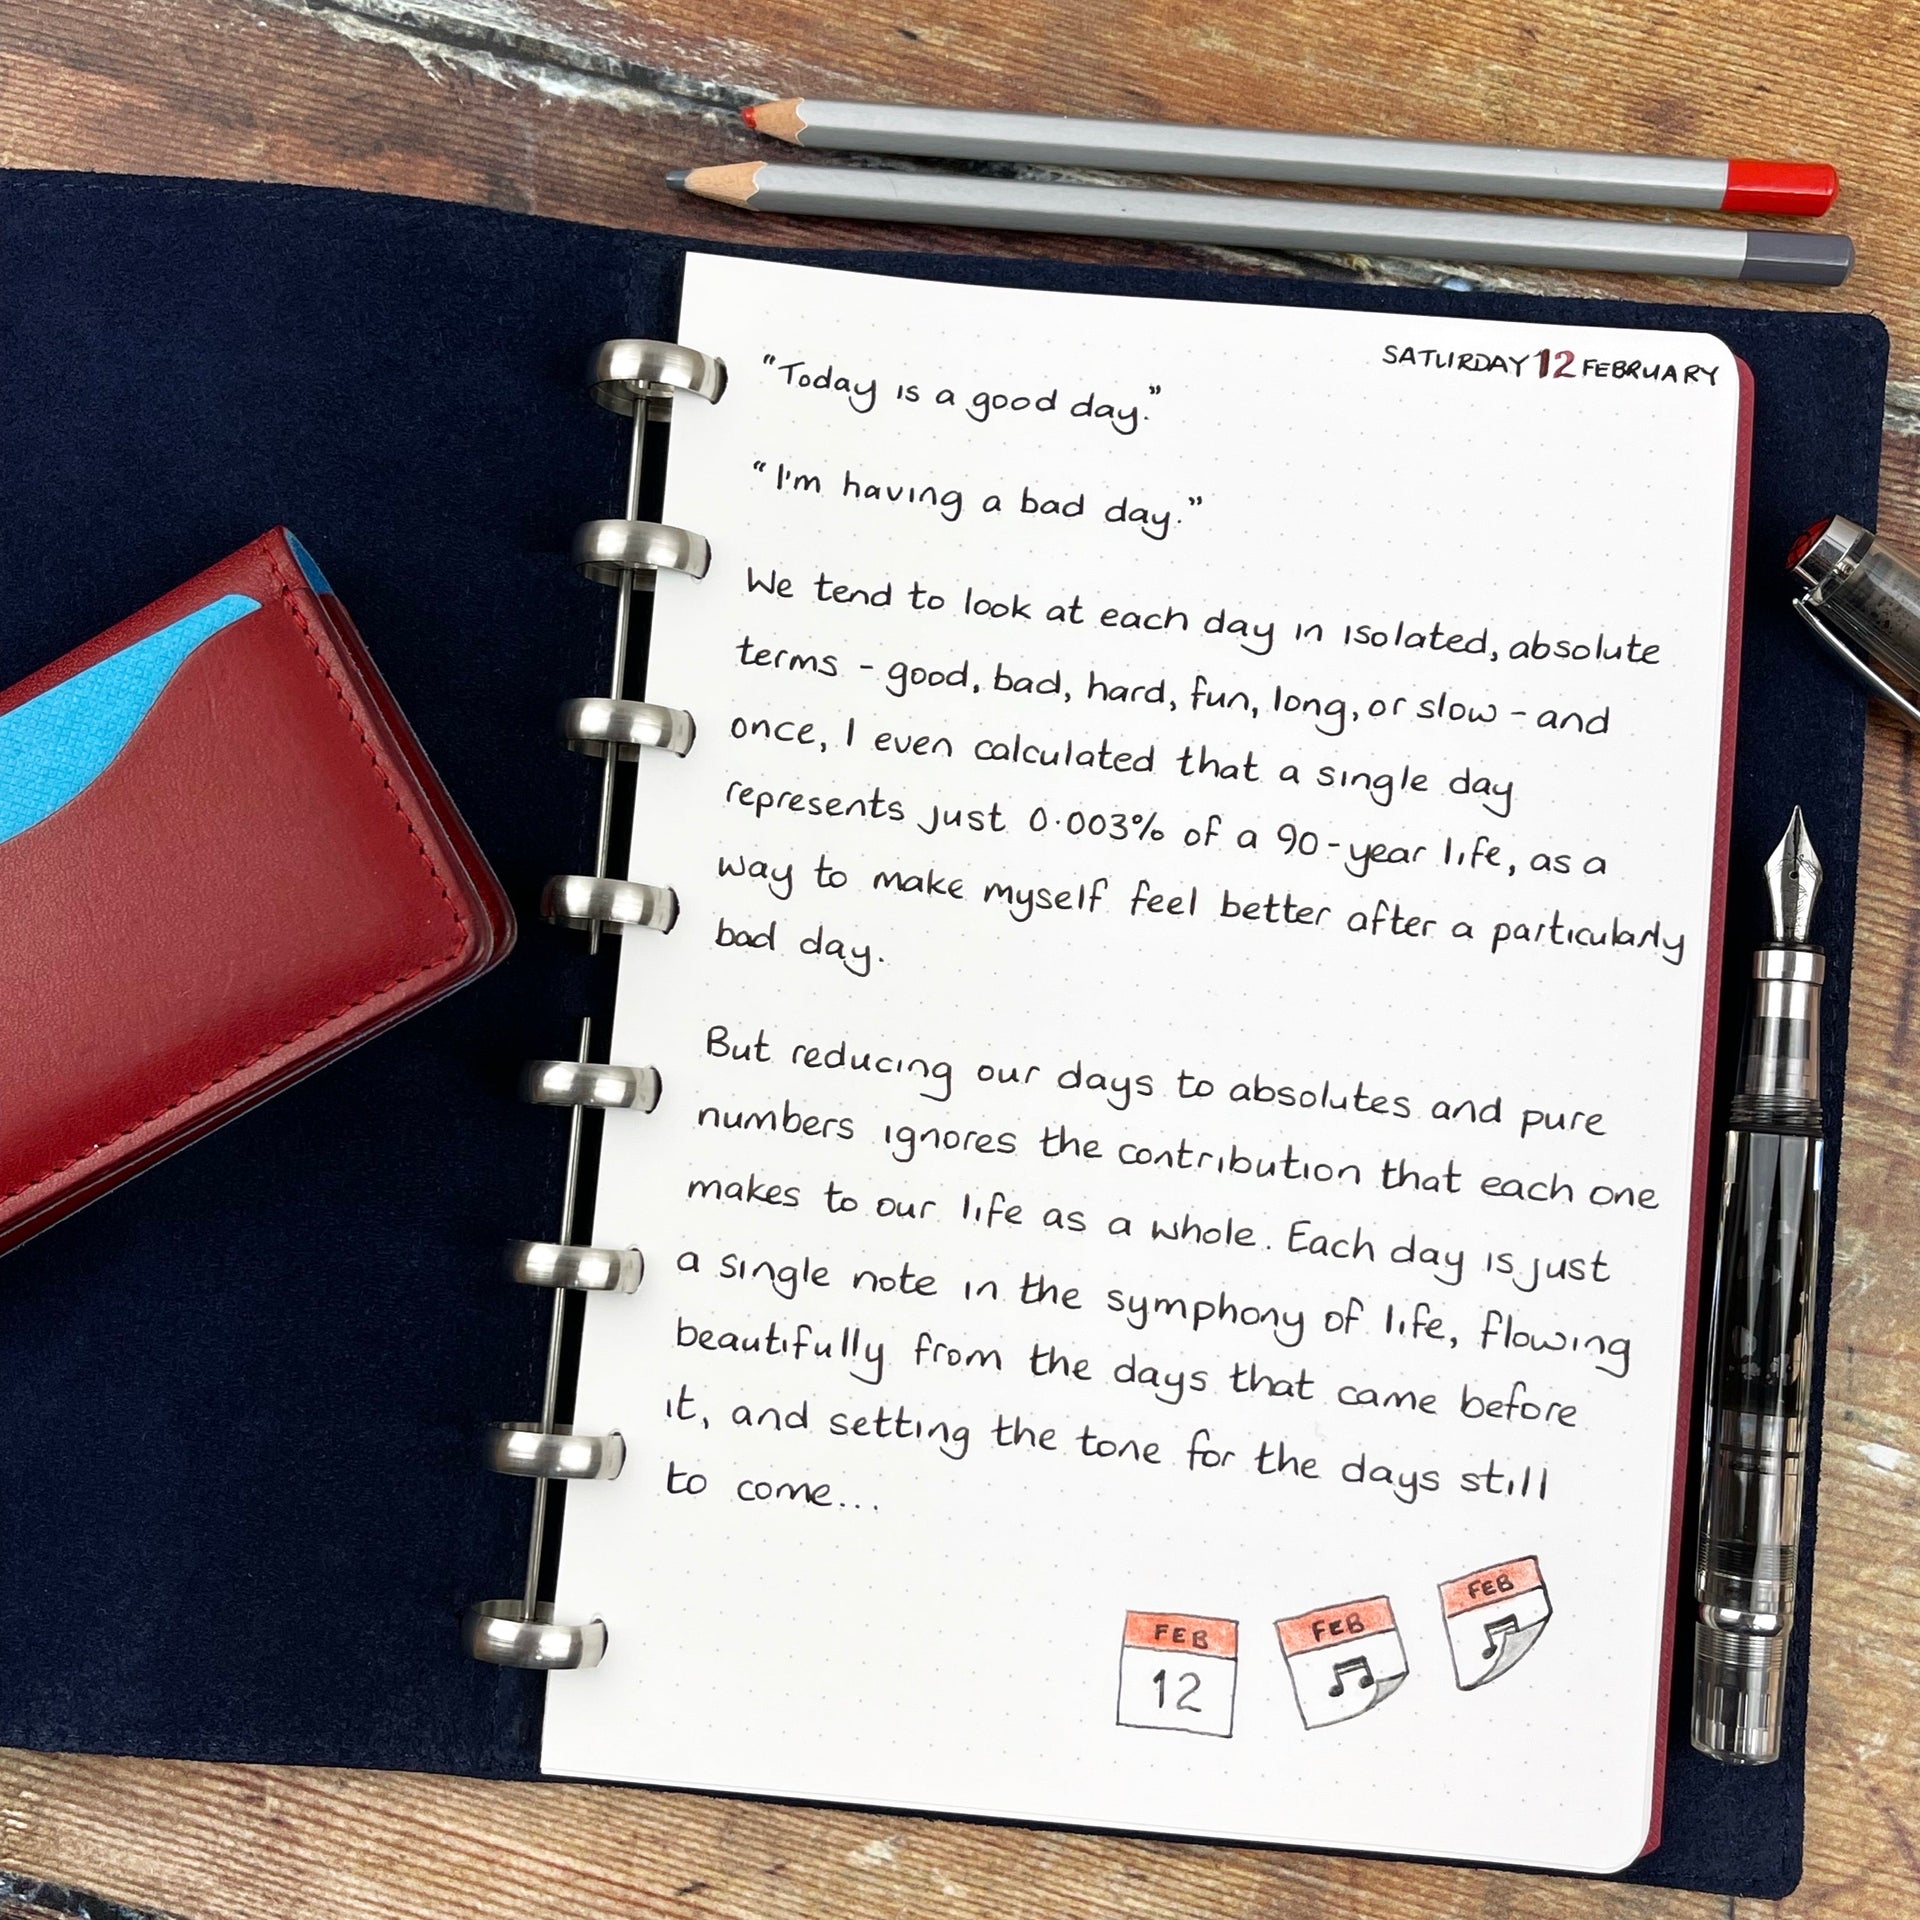 SATURDAY 12 FEBRUARY
“Today is a good day.”
“I'm having a bad day.”
We tend to look at each day in isolated, absolute
terms - good, bad, hard, fun, long, or slow - and
once, I even calculated that a single day
represents just 0·003% of a 90-year life, as a
way to make myself feel better after a particularly
bad day.
But reducing our days to absolutes and pure
numbers ignores the contribution that each one
makes to our life as a whole. Each day is just
a single note in the symphony of life, flowing
beautifully from the days that came before
it, and setting the tone for the days still
to come...
FEB
12
FEB
FEB